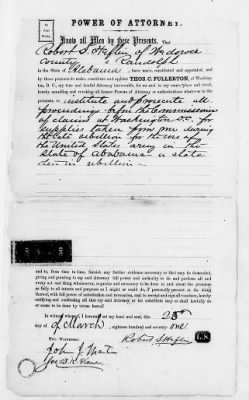 POWER OF ATTORNEY.
Know all Men by these Presents, That
Robert S Heflin of Wedowee
County of Randolph
in the State of Alabama, have made, constituted and appointed, and
by these presents do make, constitute and appoint THOS. C. FULLERTON, of Washing-
ton, D. C., my true and lawful Attorney irrevocable, for me and in my name, place and stead,
hereby annulling and revoking all former Powers of Attorney or authorizations whatever in the
premises, to institute and prosecute all
proceedings before the Commissioners
of claims at Washington D.C. for
supplies taken from me during
the late rebellion for the use of
the United States army in the
State of Alabama a state
then in rebellion
and to, from time to time, furnish any further evidence necessary or that may be demanded,
giving and granting to my said Attorney full power and authority to do and perform all and
every act and thing whatsoever, requisite and necessary to be done in and about the premises
as fully to all intents and purposes as I might or could do, if personally present at the doing
thereof, with full power of substitution and revocation, and to receipt and sign all vouchers, hereby
ratifying and confirming all that my said Attorney or his substitute may or shall lawfully do
or cause to be done by virtue hereof.
In witness whereof, I hereunto set my hand and seal, this 28th
day of March, eighteen hundred and seventy one
Two Witnesses:
Robert S Heflin
L.S.
John J Martin